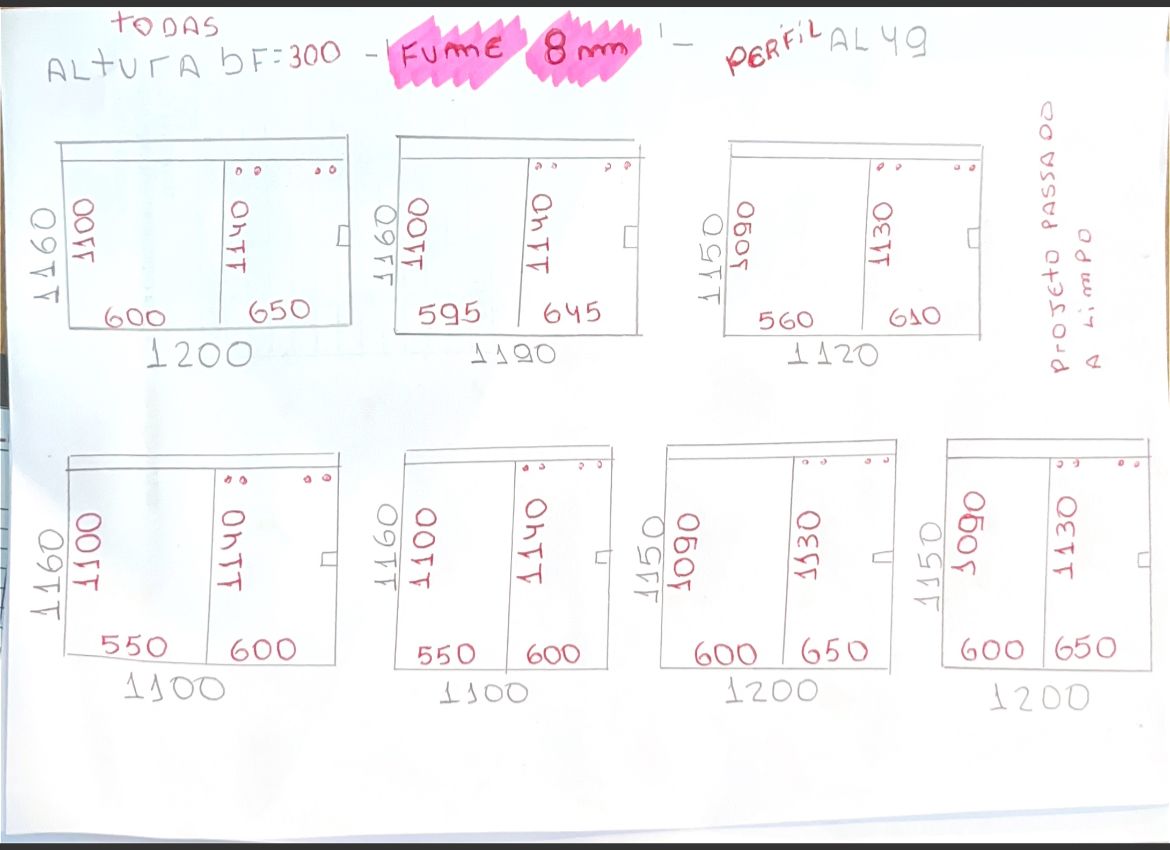 TODAS
ALTURA bF=300 - FUME 8mm - PERFiL AL 49
1160 1100 1140 600 650 1200
1160 1100 1140 595 645 1190
1150 1090 1130 560 610 1120
PROJETO PASSADO
A LiMPO
1160 1100 1140 550 600 1100
1160 1100 1140 550 600 1100
1150 1090 1130 600 650 1200
1150 1090 1130 600 650 1200